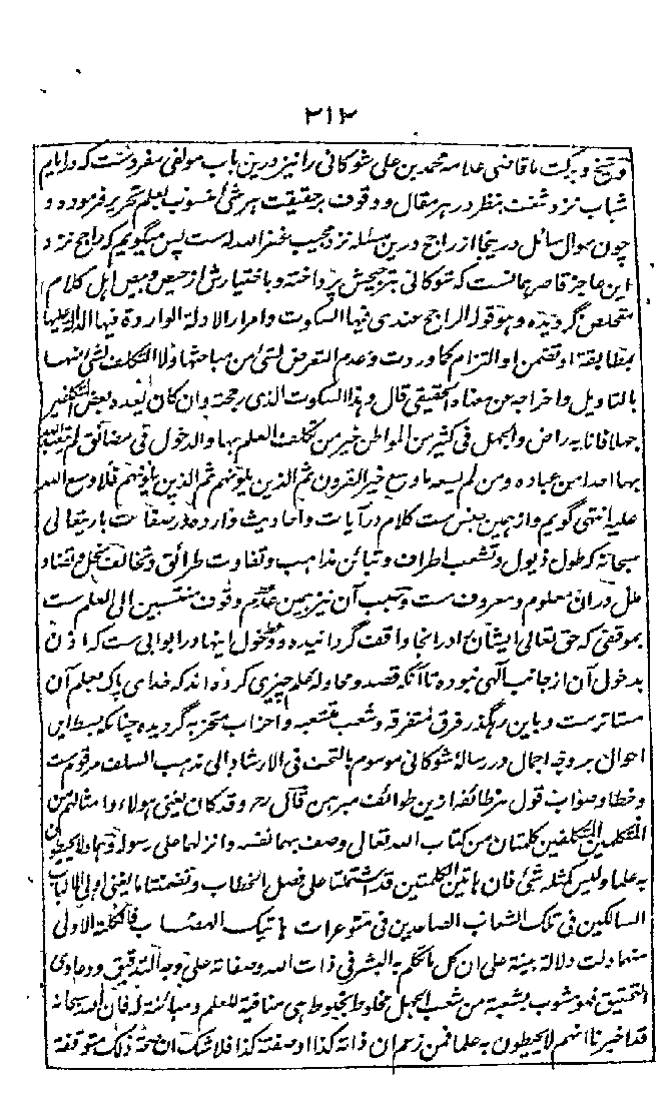 ۲۱۲
و شیخ و برکت ما قاضی علامه محمد بن علی شوکانی را نیز درین باب مولفی مفردست که در ایام
شباب نزد نظر در هر مقال و وقوف بر حقیقت هر شی منسوب بعلم تحریر فرموده و
چون سوال سائل درینجا از راجح درین مسئله نزد مجیب غفر الله له است پس میگویم که راجح نزد
این عاجز قاصر همانست که شوکانی بترجیحش پرداخته و باختیارش از حیص و بیص اهل کلام
متخلص گردیده و هو قوله الراجح عندی فیها السکوت و امرار الادلة الواردة فیها الدالة علیها
بمطابقة او تضمن او التزام کما وردت و عدم التعرض لشی من مباحثها ولا التکلف لشی منها
بالتاویل و اخراجه عن معناه الحقیقی قال و هذا السکوت الذی رجحته و ان کان یعده بعض
جهلا فانا به راض والجهل فی کثیر من المواطن خیر من تکلف العلم بها والدخول فی مضائق لم یتعبد الله
بها احدا من عباده و من لم یسعه ما وسع خیر القرون ثم الذین یلونهم ثم الذین یلونهم فلا وسع الله
علیه انتهی گویم و از همین جنس ست کلام در آیات و احادیث وارده در صفات باریتعالی
سبحانه که طول ذیول و تشعب اطراف و تباین مذاهب و تفاوت طرائق و تخالف نحل و تضاد
ملل دران معلوم و معروف ست و سبب آن نیز همین عدم وقوف منتسبین الی العلم ست
بموقفی که حق تعالی ایشان را در انجا واقف گردانیده و دخول اینها در ابوابی ست که اذن
بدخول آن از جانب الهی نبوده تا آنکه قصد و محاوله علم چیزی کرده اند که خدای پاک بعلم آن
مستاثرست و باین رهگذر فرق متفرقه و شعب متشعبه و احزاب متحزبه گردیده چنانکه بسط این
احوال بر وجه اجمال در رساله شوکانی موسوم بالتحف فی الارشاد الی مذهب السلف مرقومست
و خطا و صواب قول هر طائفه ازین طوائف مبرهن قال رح و قد کان یغنی هولاء و امثالهم من
المتکلمین المتکلفین کلمتان من کتاب الله تعالی وصف بهما نفسه و انزلهما علی رسوله و هما ولا یحیطون
به علما و لیس کمثله شئ فان هاتین الکلمتین قد اشتملتا علی فصل الخطاب و تضمنتا ما یغنی اولی الالباب
السالکین فی تلک الشعاب الصاعدین فی متوعرات هاتیک الهضاب فالکلمة الاولی
منهما دلت دلالة بینة علی ان کل ما تکلم به البشر فی ذات الله و صفاته علی وجه التدقیق و دعاوی
التحقیق فهو مشوب بشعبة من شعب الجهل مخلوط بخلوط هی منافیة للعلم و مباینة له فان الله سبحانه
قد اخبرنا انهم لا یحیطون به علما فمن زعم ان ذاته کذا او صفته کذا فلا شک ان صحة ذلک متوقفة